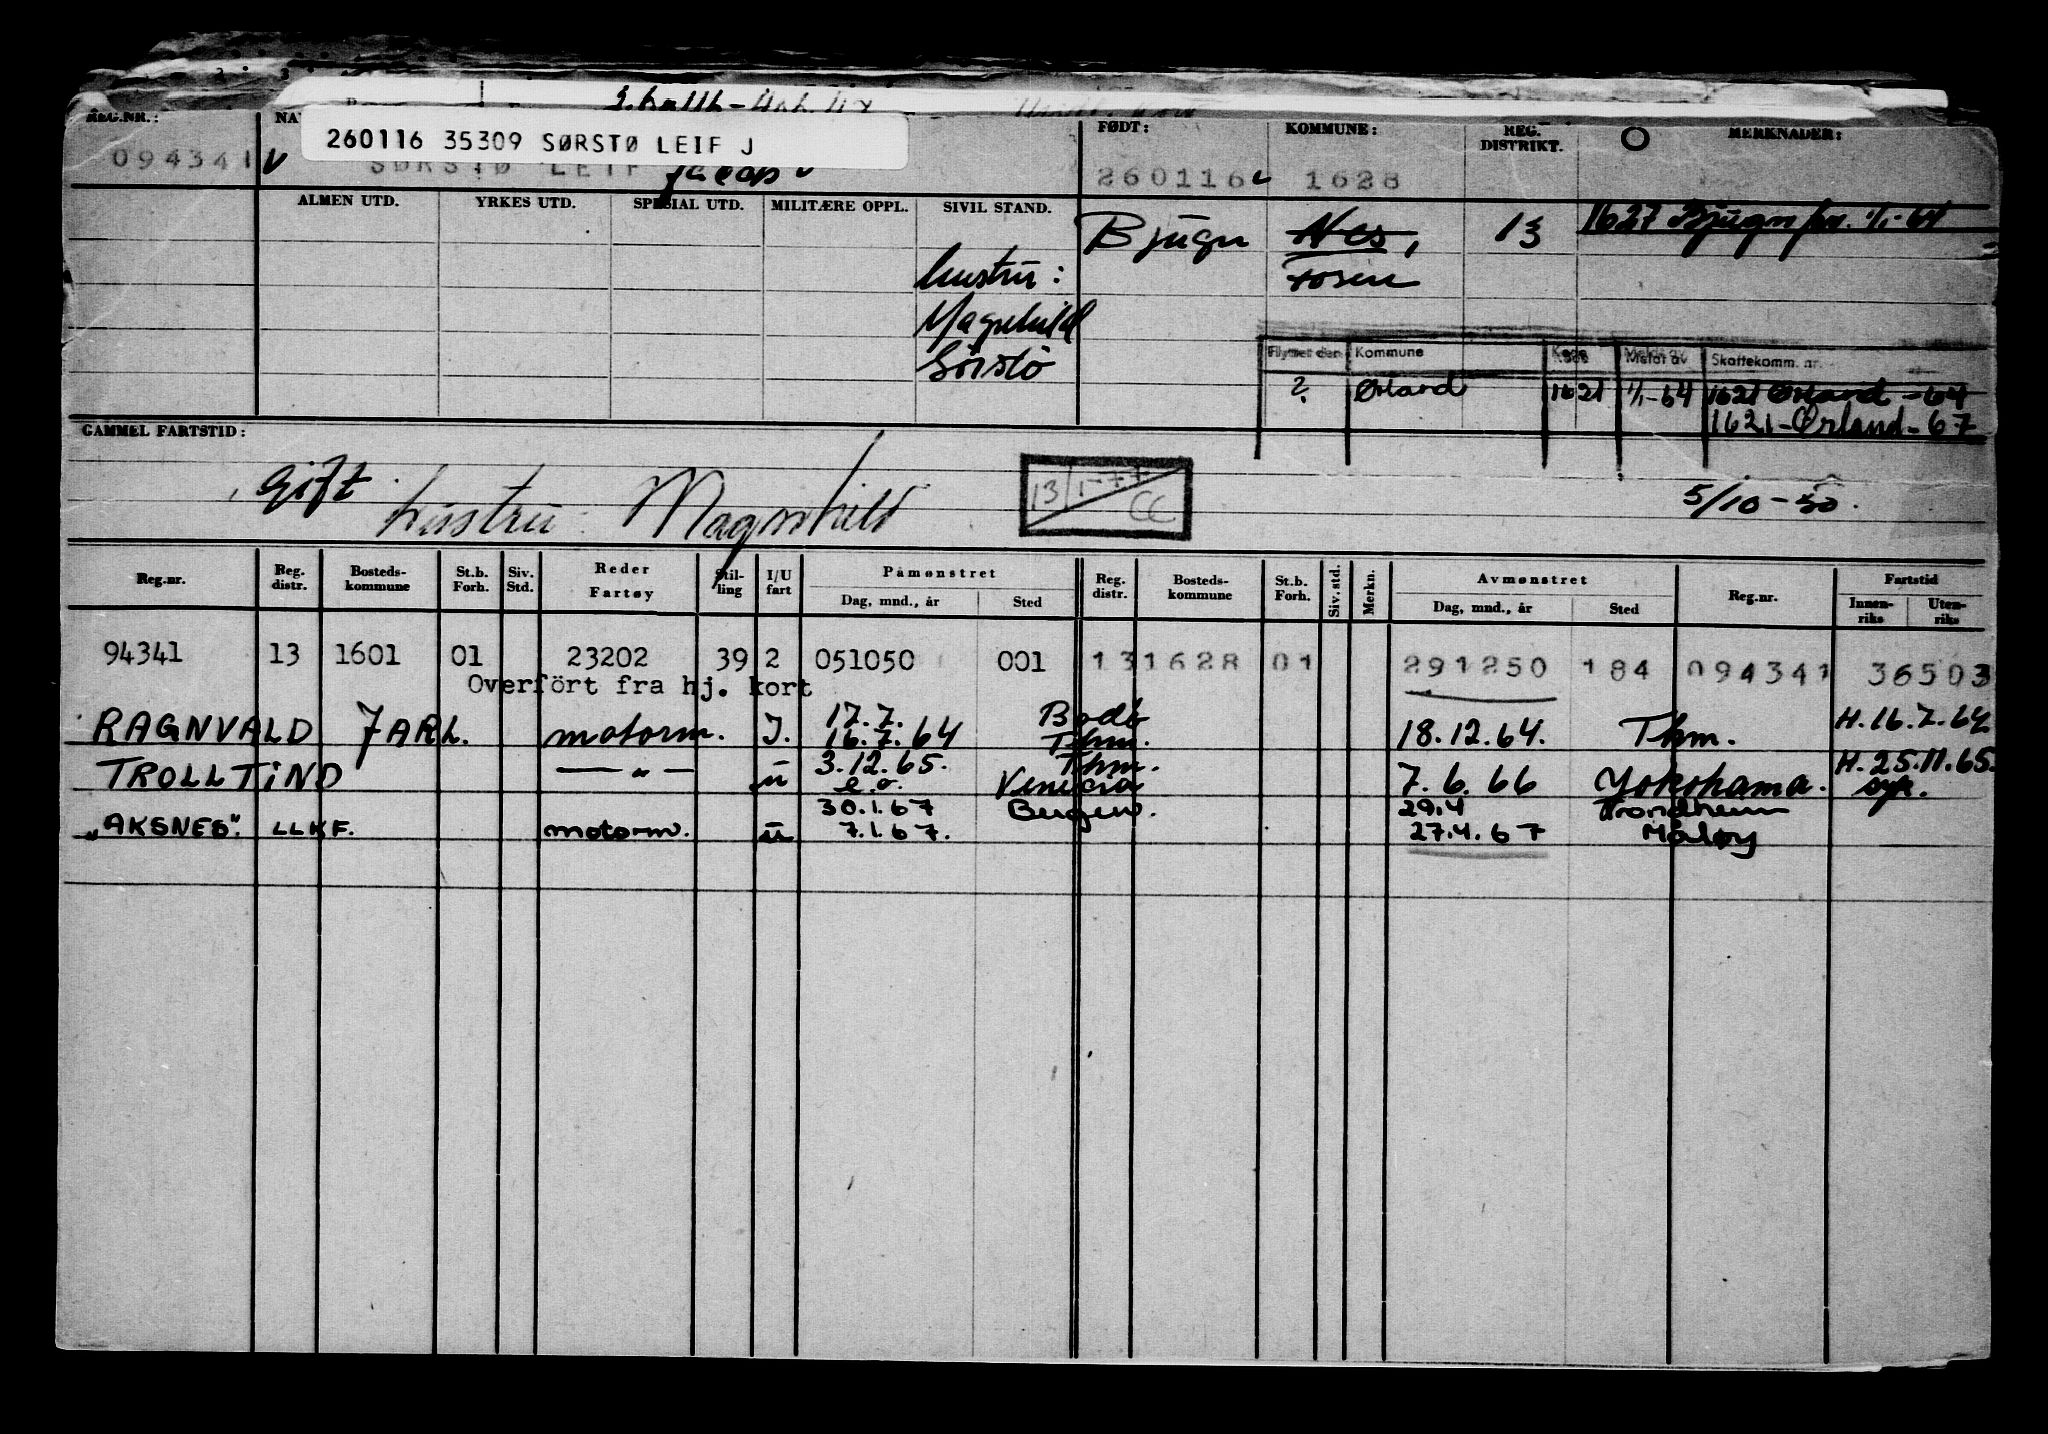 REG.NR.:
260116 35309 SØRSTØ LEIF J
FØDT: KOMMUNE: REG. DISTRIKT. MERKNADER:
094341 SØRSTØ LEIF Jacob 260116 1628
ALMEN UTD. YRKES UTD. SPESIAL UTD. MILITÆRE OPPL. SIVIL STAND.
Bjugn Nes, 13 1627 Bjugn 1/1-64
hustru: Fosen
Magnhild
Sørstø
Flyttet den Kommune Kode Meldt av Skattekomm. nr.
? Ørland 1621 1/1-64 1621 Ørland -64
1621-Ørland-67
GAMMEL FARTSTID:
Gift. hustru: Magnhild 13/1-77 CC 5/10-50.
Reg.nr. Reg. distr. Bosteds-kommune St.b. Forh. Siv. Std. Reder Fartøy Stil-ling I/U fart Påmønstret Dag, mnd., år Sted Reg. distr. Bosteds-kommune St.b. Forh. Siv. std. Merkn. Avmønstret Dag, mnd., år Sted Reg.nr. Fartstid Innen-riks Uten-riks
94341 13 1601 01 23202 39 2 051050 001 13 1628 01 291250 184 094341 36503
Overfört fra hj. kort
17.7. Bodö
RAGNVALD JARL. motorm. J. 16.7.64 Thm. 18.12.64. Thm. H.16.7.64
3.12.65. Thm. H.25.11.65.
TROLLTIND — " — u e.o. Venezia 7.6.66 Yokohama. syk.
30.1.67 Bergen. 29.4 Trondheim
"AKSNES". LLKF. motorm. u 7.1.67. 27.4.67 Måløy